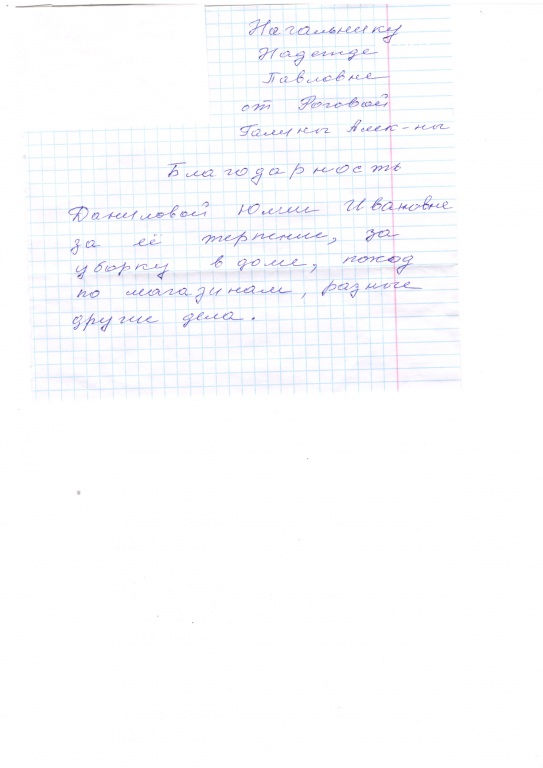 Начальнику
Надежде
Павловне
от Роговой
Галины Алек-ны
Благодарность
Даниловой Юлии Ивановне
за её терпение, за
уборку в доме, поход
по магазинам, разные
другие дела.